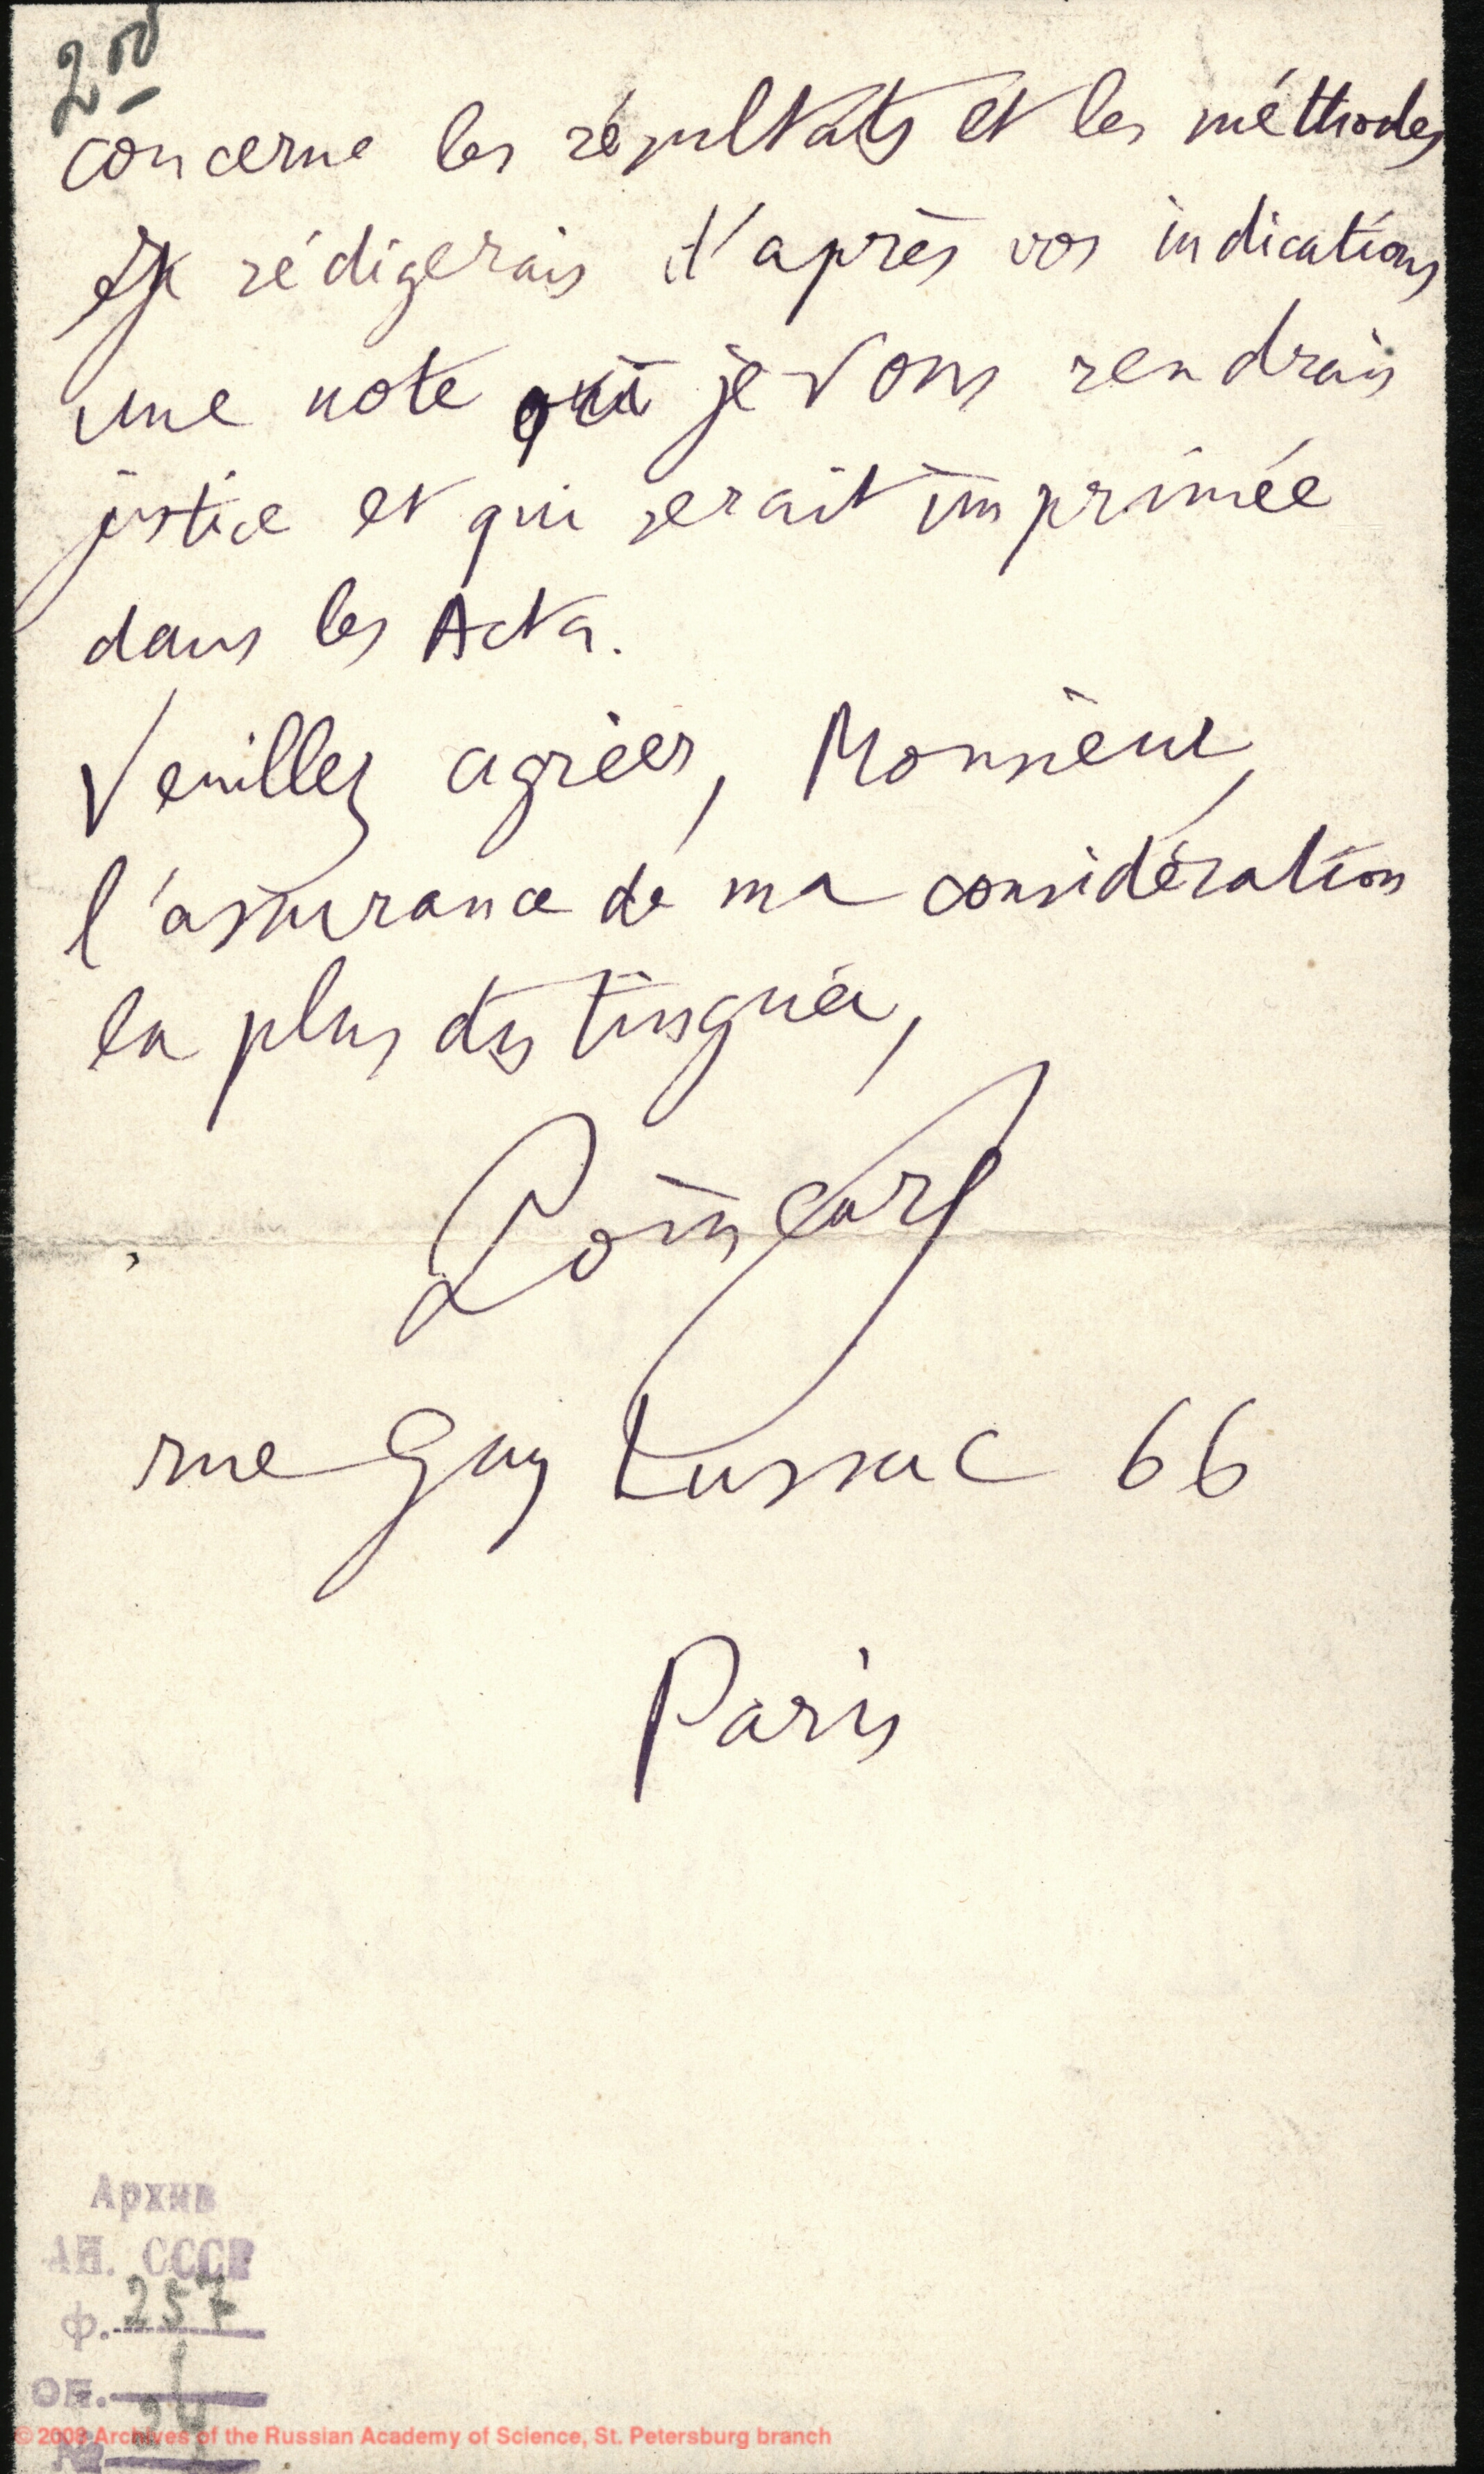 2 об
concerne les résultats et les méthodes
je rédigerais d'après vos indications
une note où je vous rendrais
justice et qui serait imprimée
dans les Acta.
Veuillez agréer, Monsieur,
l'assurance de ma considération
la plus distinguée,
Poincaré
rue Gay Lussac 66
Paris
Архив
АН. СССР
ф. 257
оп. 1
№ 24
© 2008 Archives of the Russian Academy of Science, St. Petersburg branch